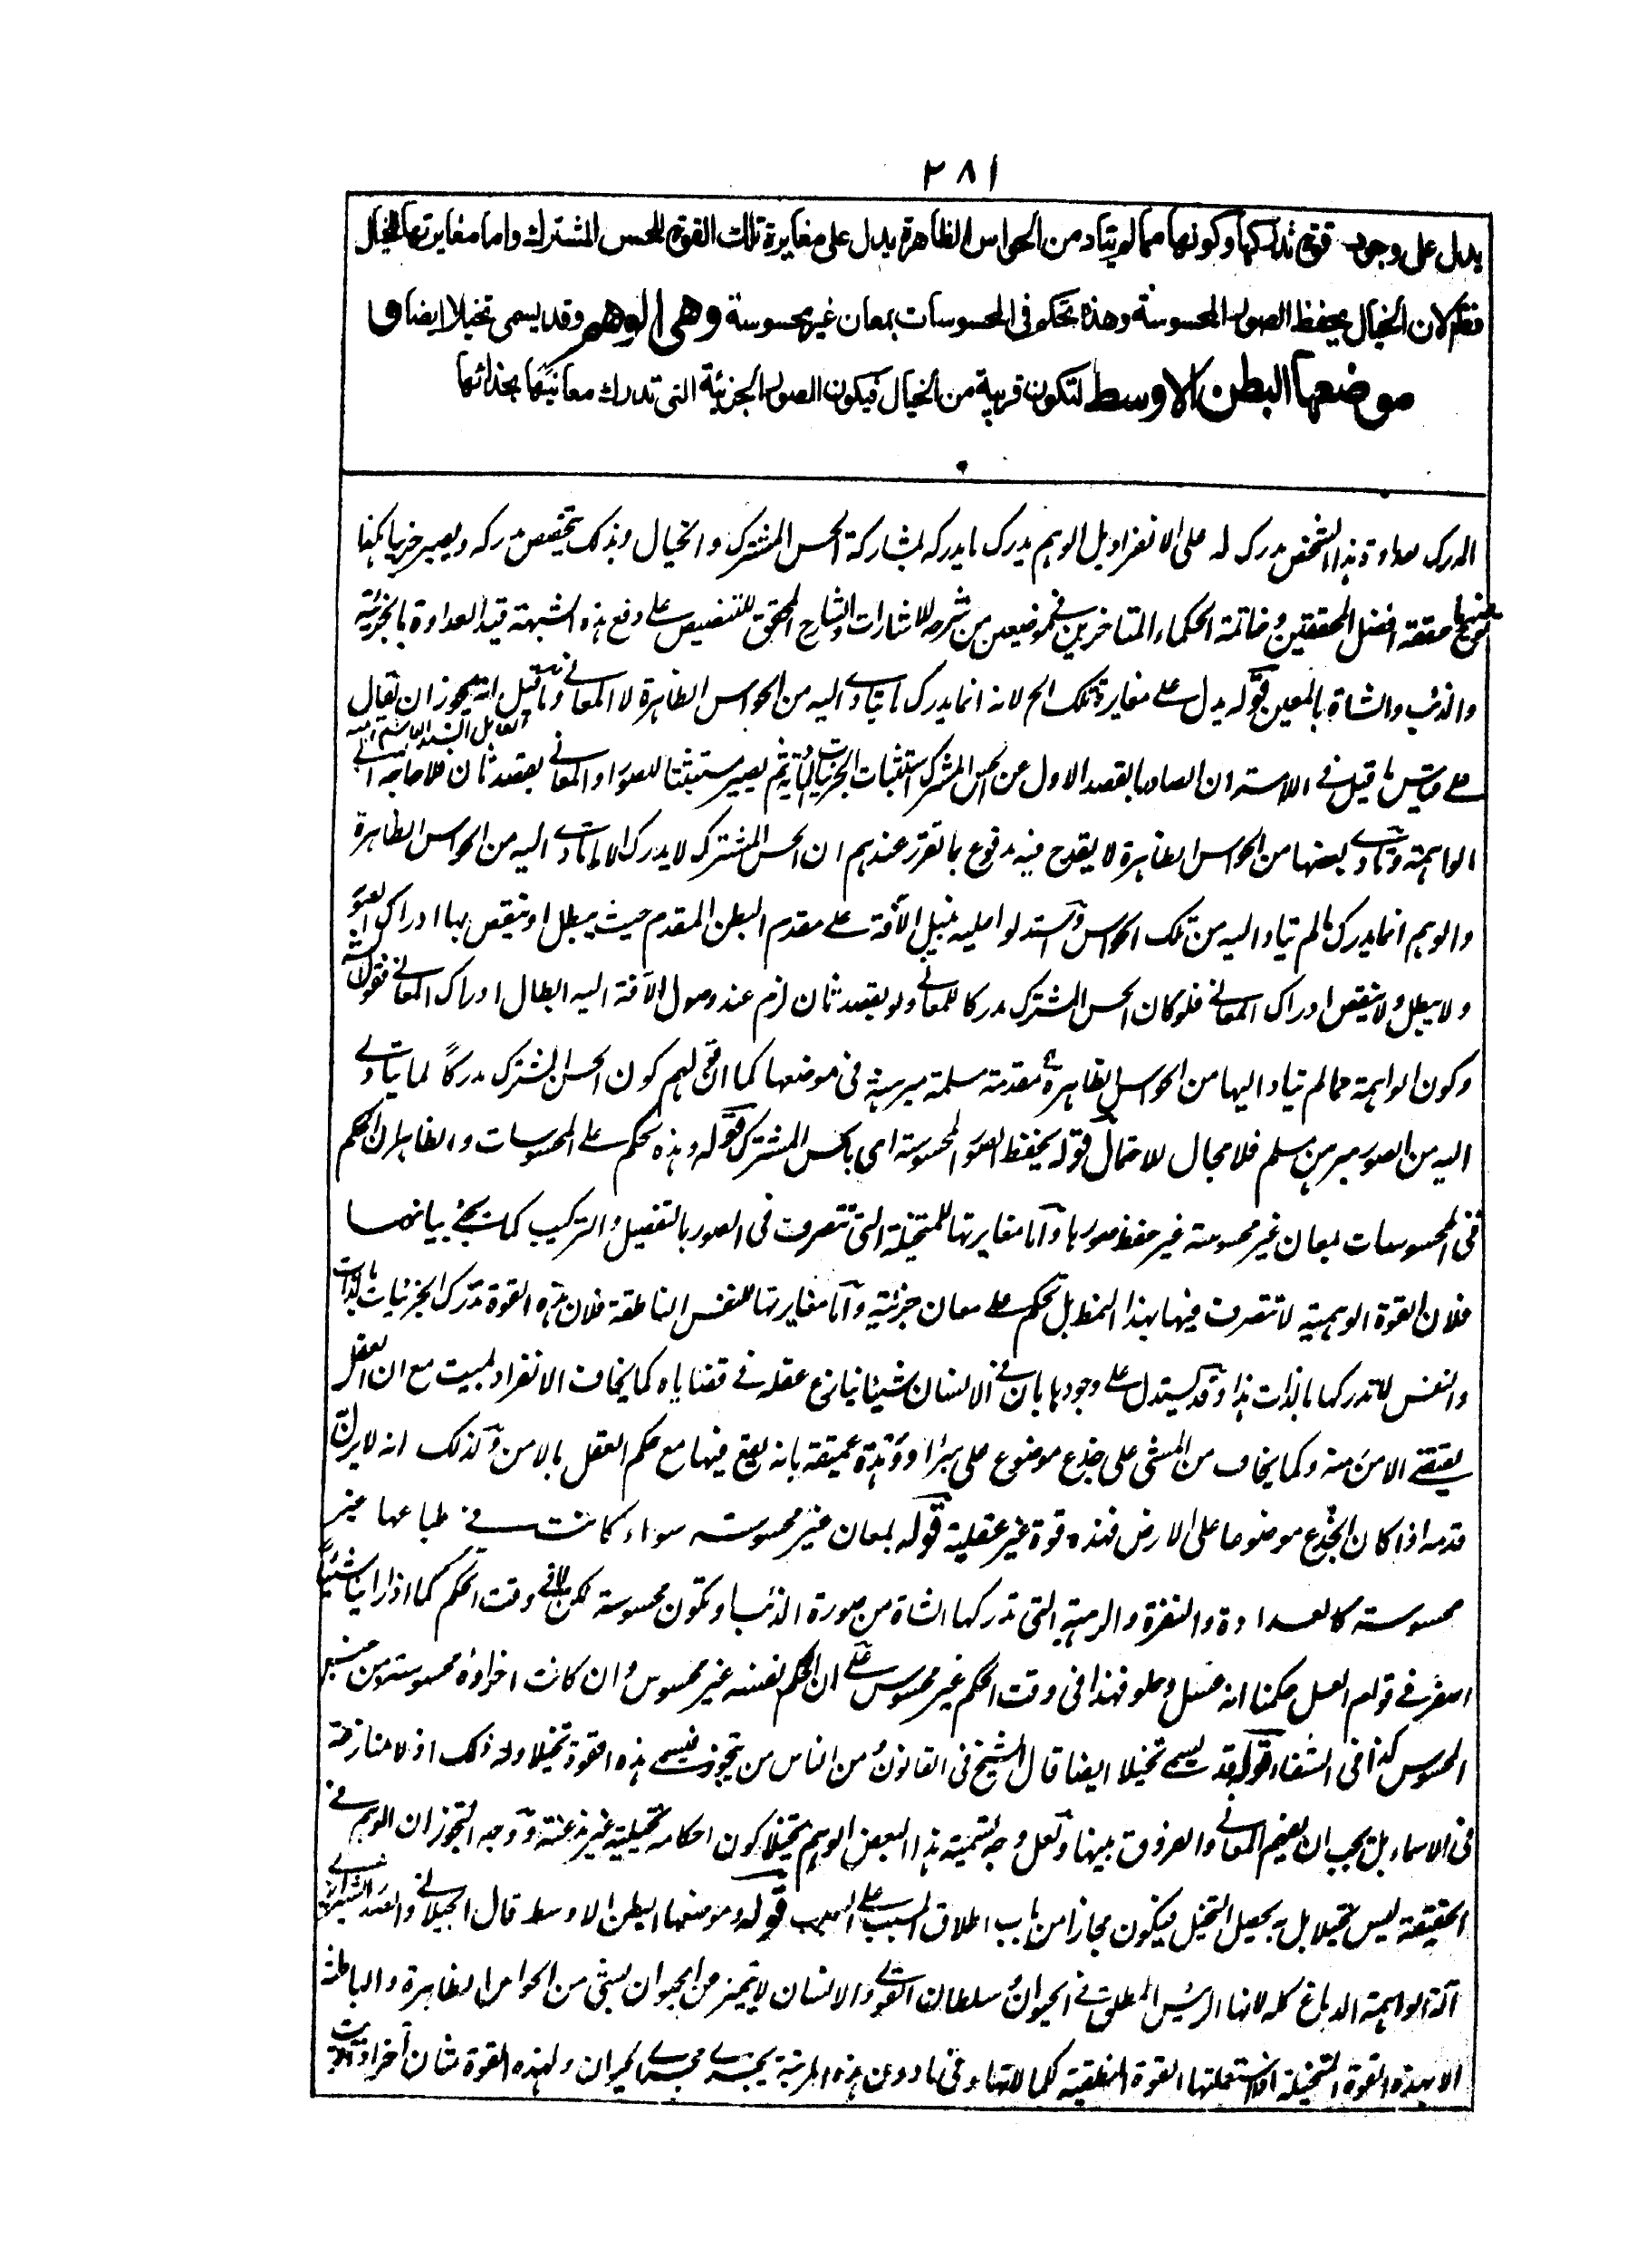 ٢٨١
يدل على وجود قوة تدركها وكونها مما لم يتاد من الحواس الظاهرة يدل على مغايرة تلك القوة للحس المشترك واما مغايرتها للخيال
فلان الخيال يحفظ الصور المحسوسة وهذه تحكم فى المحسوسات بمعان غير محسوسة وهى الوهم وقد يسمى تخيلا ايضا و
موضعها البطن الاوسط لتكون قريبة من الخيال فيكون الصور الجزئية التى تدرك معانيها بحذائها
المدرك عداوة هذا الشخص مدرك له على الانفراد بل الوهم يدرك ما يدركه بمشاركة الحس المشترك والخيال وبذلك يتخصص مدركه ويصير جزئيا هكذا
حققه افضل المحققين وخاتمة الحكماء المتاخرين فى موضعين من شرحه للاشارات والشارح المحقق للتنصيص على دفع هذه الشبهة قيد العداوة بالجزئية
والذئب والشاة بالمعين قوله يدل على مغايرة تلك الخ لانه انما يدرك ما يتادى اليه من الحواس الظاهرة لا المعانى وما قيل انه يجوز ان يقال
على قياس ما قيل فى ان الصادر بالقصد الاول عن الحس المشترك استثبات الجزئيات ثم يصير مستثبتا للصور والمعانى بقصد ثان فلا حاجة الى
الواهمة وتادى بعضها من الحواس الظاهرة لا يقدح فيه مدفوع بما تقرر عندهم ان الحس المشترك لا يدرك الا ما يتادى اليه من الحواس الظاهرة
والوهم انما يدرك ما لم يتاد اليه من تلك الحواس واستدلوا عليه بنيل الآفة على مقدم البطن المقدم حيث يبطل او ينقص بها ادراك الصور
ولا يبطل ولا ينقص ادراك المعانى فلو كان الحس المشترك مدركا للمعانى ولو بقصد ثان لزم عند وصول الآفة اليه ابطال ادراك المعانى فقولنا
وكون الواهمة مما لم يتاد اليها من الحواس الظاهرة مقدمة مسلمة مبرهنة فى موضعها كما ان قولهم كون الحس المشترك مدركاً لما يتادى
اليه من الصور مبرهن مسلم فلا مجال للاحتمال قوله يحفظ الصور المحسوسة اى بالحس المشترك قوله وهذه تحكم على المحسوسات والظاهر ان الحكم
فى المحسوسات بمعان غير محسوسة غير حفظ صورها واما مغايرتها للمتخيلة التى تتصرف فى الصور بالتفصيل والتركيب كما سيجئ بيانها
فلان القوة الوهمية لا تتصرف فيها بهذا النمط بل تحكم على معان جزئية واما مغايرتها للنفس الناطقة فلان هذه القوة تدرك الجزئيات بالذات
والنفس لا تدركها بالذات هذا وقد يستدل على وجودها بان فى الانسان شيئا ينازع عقله فى قضاياه كما يخاف الانفراد بميت مع ان العقل
يقتضى الامن منه وكما يخاف من المشى على جذع موضوع على بئر او وهدة عميقة بانه يقع فيها مع حكم العقل بالامن وكذلك انه لا يزل
قدمه اذا كان الجذع موضوعا على الارض فهذه قوة غير عقلية قوله بمعان غير محسوسة سواء كانت فى طباعها غير
محسوسة كالعداوة والنفرة والرهبة التى تدركها الشاة من صورة الذئب او تكون محسوسة لكن لا فى وقت الحكم كما اذا راينا شيئاً
اصفر فى قوام العسل حكمنا انه عسل وحلو فهذا فى وقت الحكم غير محسوس على ان الحكم نفسه غير محسوس وان كانت اجزاؤه محسوسة من جنس
المحسوس كذا فى الشفاء قوله وقد يسمى تخيلا ايضا قال الشيخ فى القانون ومن الناس من يتجوز فيسمى هذه القوة تخيلا وله ذلك اذ لا منازعة
فى الاسماء بل يجب ان يفهم المعانى والفروق بينها ولعل وجه تسمية هذا البعض الوهم تخيلا كون احكامه تخييلية غير مذعنة ووجه التجوز ان الوهم فى
الحقيقة ليس تخيلا بل به يحصل التخيل فيكون مجازا من باب اطلاق المسبب على السبب قوله وموضعها البطن الاوسط قال الجيلانى
آلة الواهمة الدماغ كله لانها الرئيس المطلق فى الحيوان وسلطان القوى والانسان لا يتميز من الحيوان بشئ من الحواس الظاهرة والباطنة
الا بهذه القوة المتخيلة اذا استعملتها القوة النطقية كمالاتها وفى ما دون هذه المرتبة يجرى مجرى الحيوان ولهذه القوة شان آخر